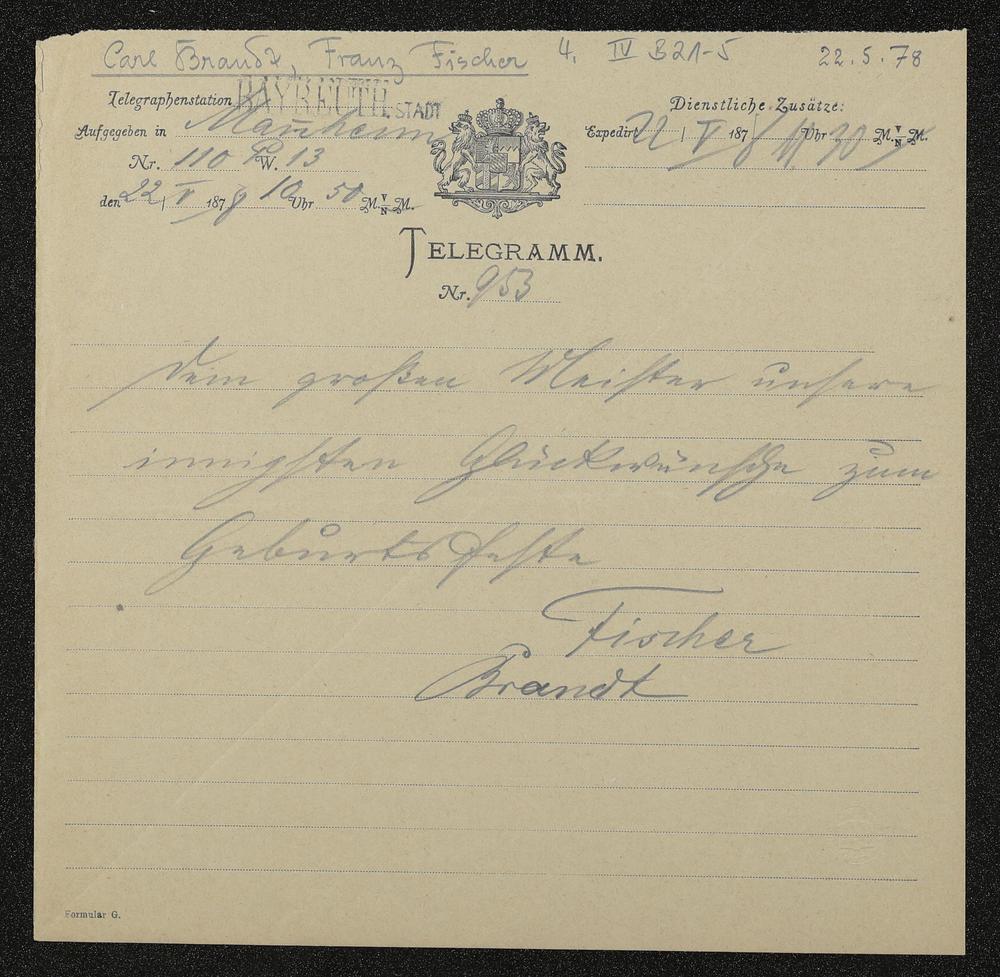 Carl Brandt, Franz Fischer 4. IV B21-5 22.5.78
Telegraphenstation BAYREUTH-STADT
Dienstliche Zusätze:
Aufgegeben in Mannheim
Expedirt 22 / V 1878 Uhr 30 M. V/N M.
Nr. 110 W. 13
den 22 / V 1878 10 Uhr 50 M. V/N M.
TELEGRAMM.
Nr. 953
Dem großen Meister unsere
innigsten Glückwünsche zum
Geburtsfeste
Fischer
Brandt
Formular G.